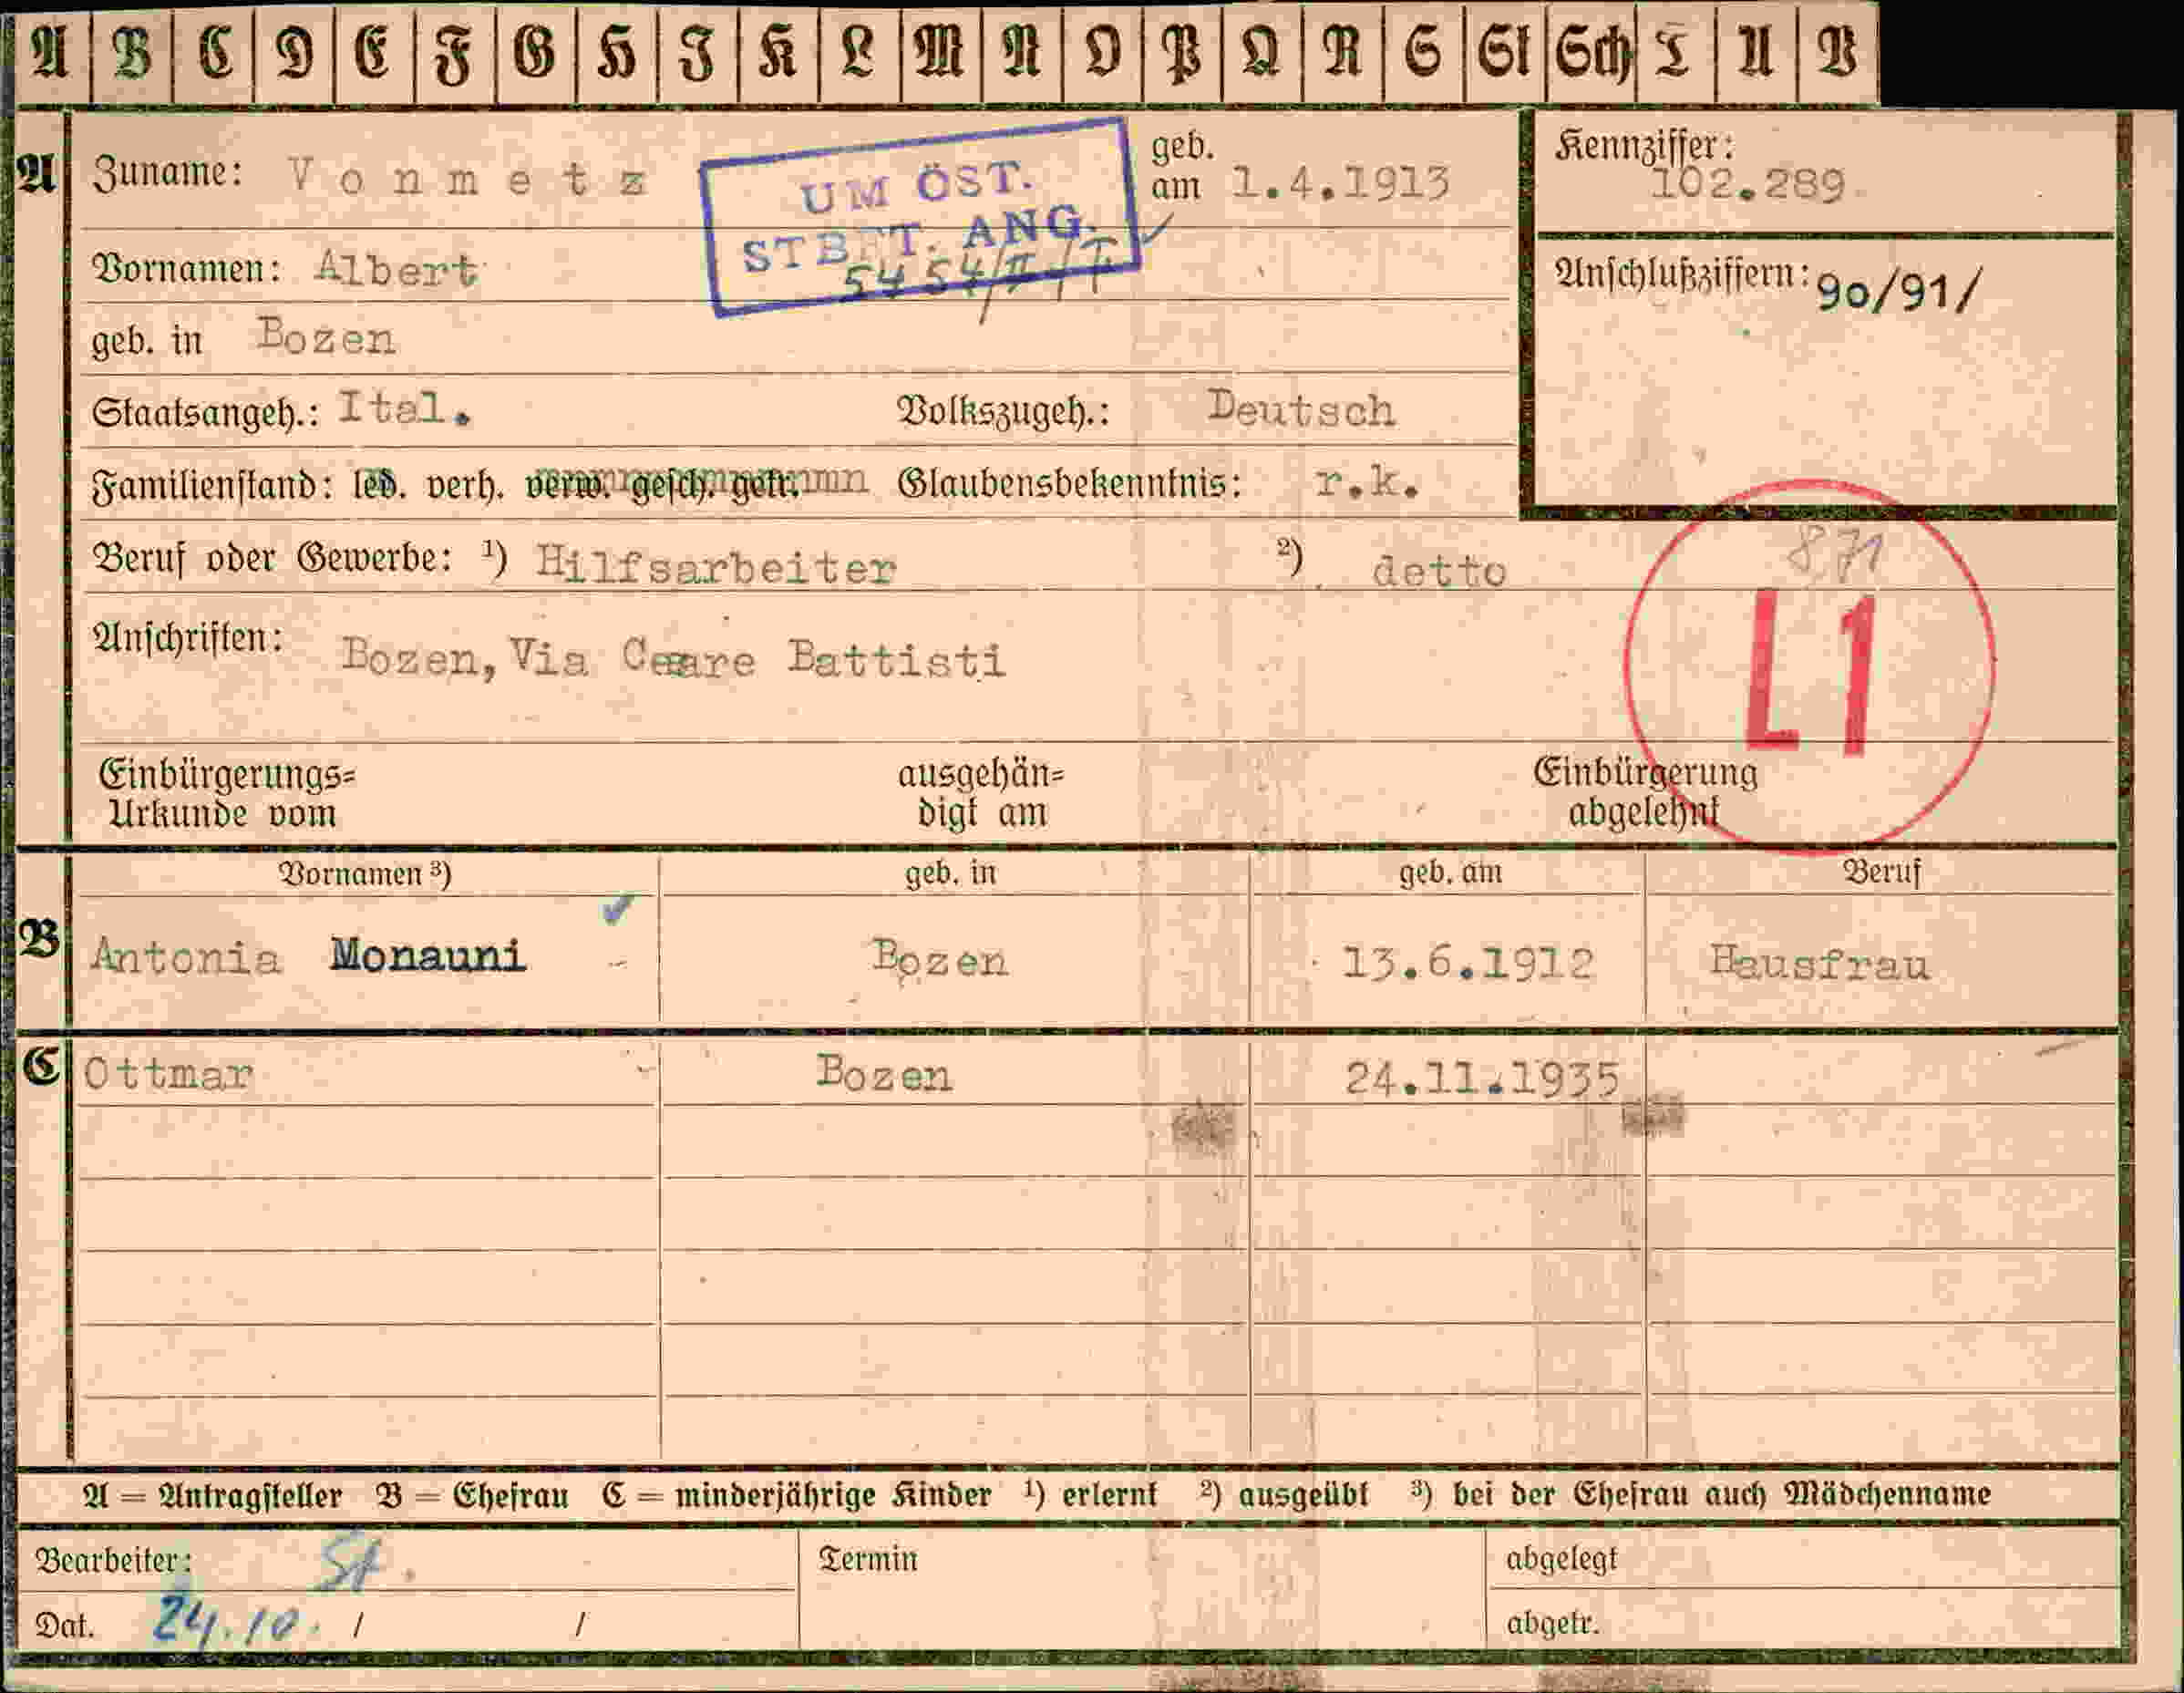 A B C D E F G H J K L M N O P Q R S St Sch T U V
A Zuname: Vonmetz geb. am 1.4.1913 Kennziffer: 102.289
UM ÖST.
STBFT. ANG.
5454/II/T
Vornamen: Albert Anschlußziffern: 90/91/
geb. in Bozen
Staatsangeh.: Ital. Volkszugeh.: Deutsch
Familienstand: led. verh. verw. gesch. getr. Glaubensbekenntnis: r.k.
Beruf oder Gewerbe: ¹) Hilfsarbeiter ²) detto
871
L1
Anschriften: Bozen, Via Cesare Battisti
Einbürgerungs= ausgehän= Einbürgerung
Urkunde vom digt am abgelehnt
Vornamen ³) geb. in geb. am Beruf
B Antonia Monauni Bozen 13.6.1912 Hausfrau
C Ottmar Bozen 24.11.1935
A = Antragsteller B = Ehefrau C = minderjährige Kinder ¹) erlernt ²) ausgeübt ³) bei der Ehefrau auch Mädchenname
Bearbeiter: St. Termin abgelegt
Dat. 24.10. / / abgetr.